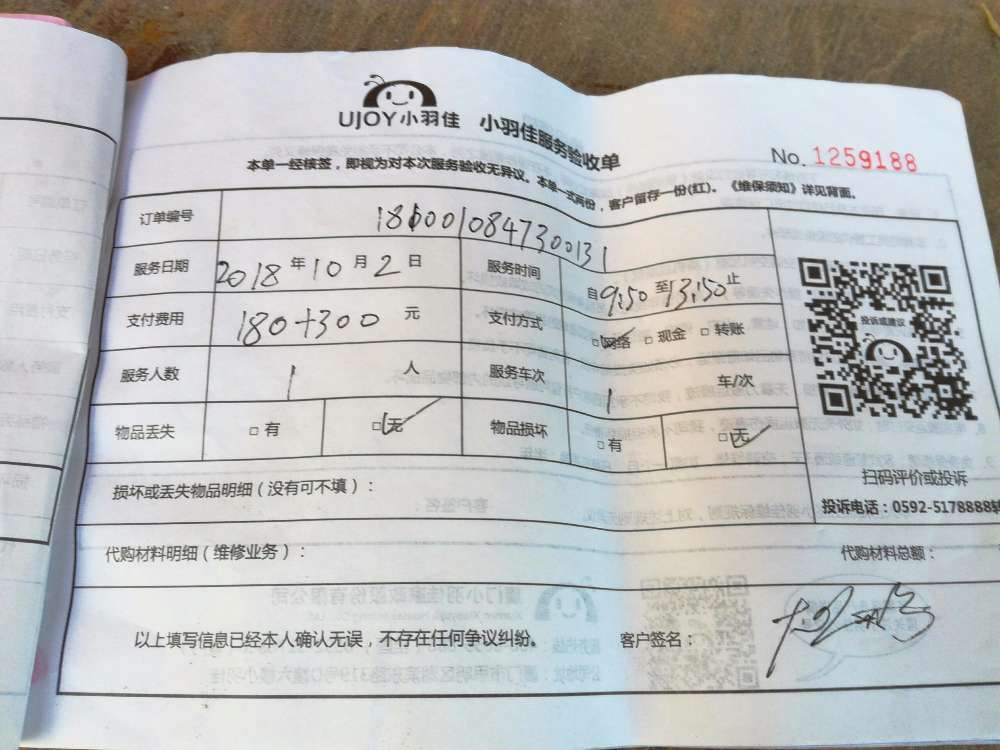 UJOY小羽佳 小羽佳服务验收单
No. 1259188
本单一经核签，即视为对本次服务验收无异议。本单一式两份，客户留存一份(红)。《维保须知》详见背面。
订单编号
服务日期 2018 年 10 月 2 日 服务时间 自 9:50 至 13:50 止
支付费用 180+300 元 支付方式 □网络 □现金 □转账
服务人数 1 人 服务车次 1 车/次
物品丢失 □有 □无 物品损坏 □有 □无
投诉或建议
扫码评价或投诉
投诉电话：0592-5178888转
损坏或丢失物品明细（没有可不填）：
代购材料明细（维修业务）： 代购材料总额：
以上填写信息已经本人确认无误，不存在任何争议纠纷。 客户签名：